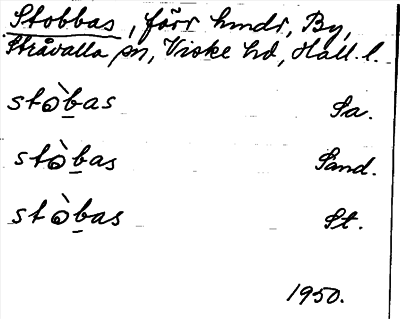 Stobbas, förr hmdr, By,
Stråvalla sn, Viske hd, Hall. l.
stò̱bas Sa.
stò̱bas Sand.
stò̱bas St.
1950.